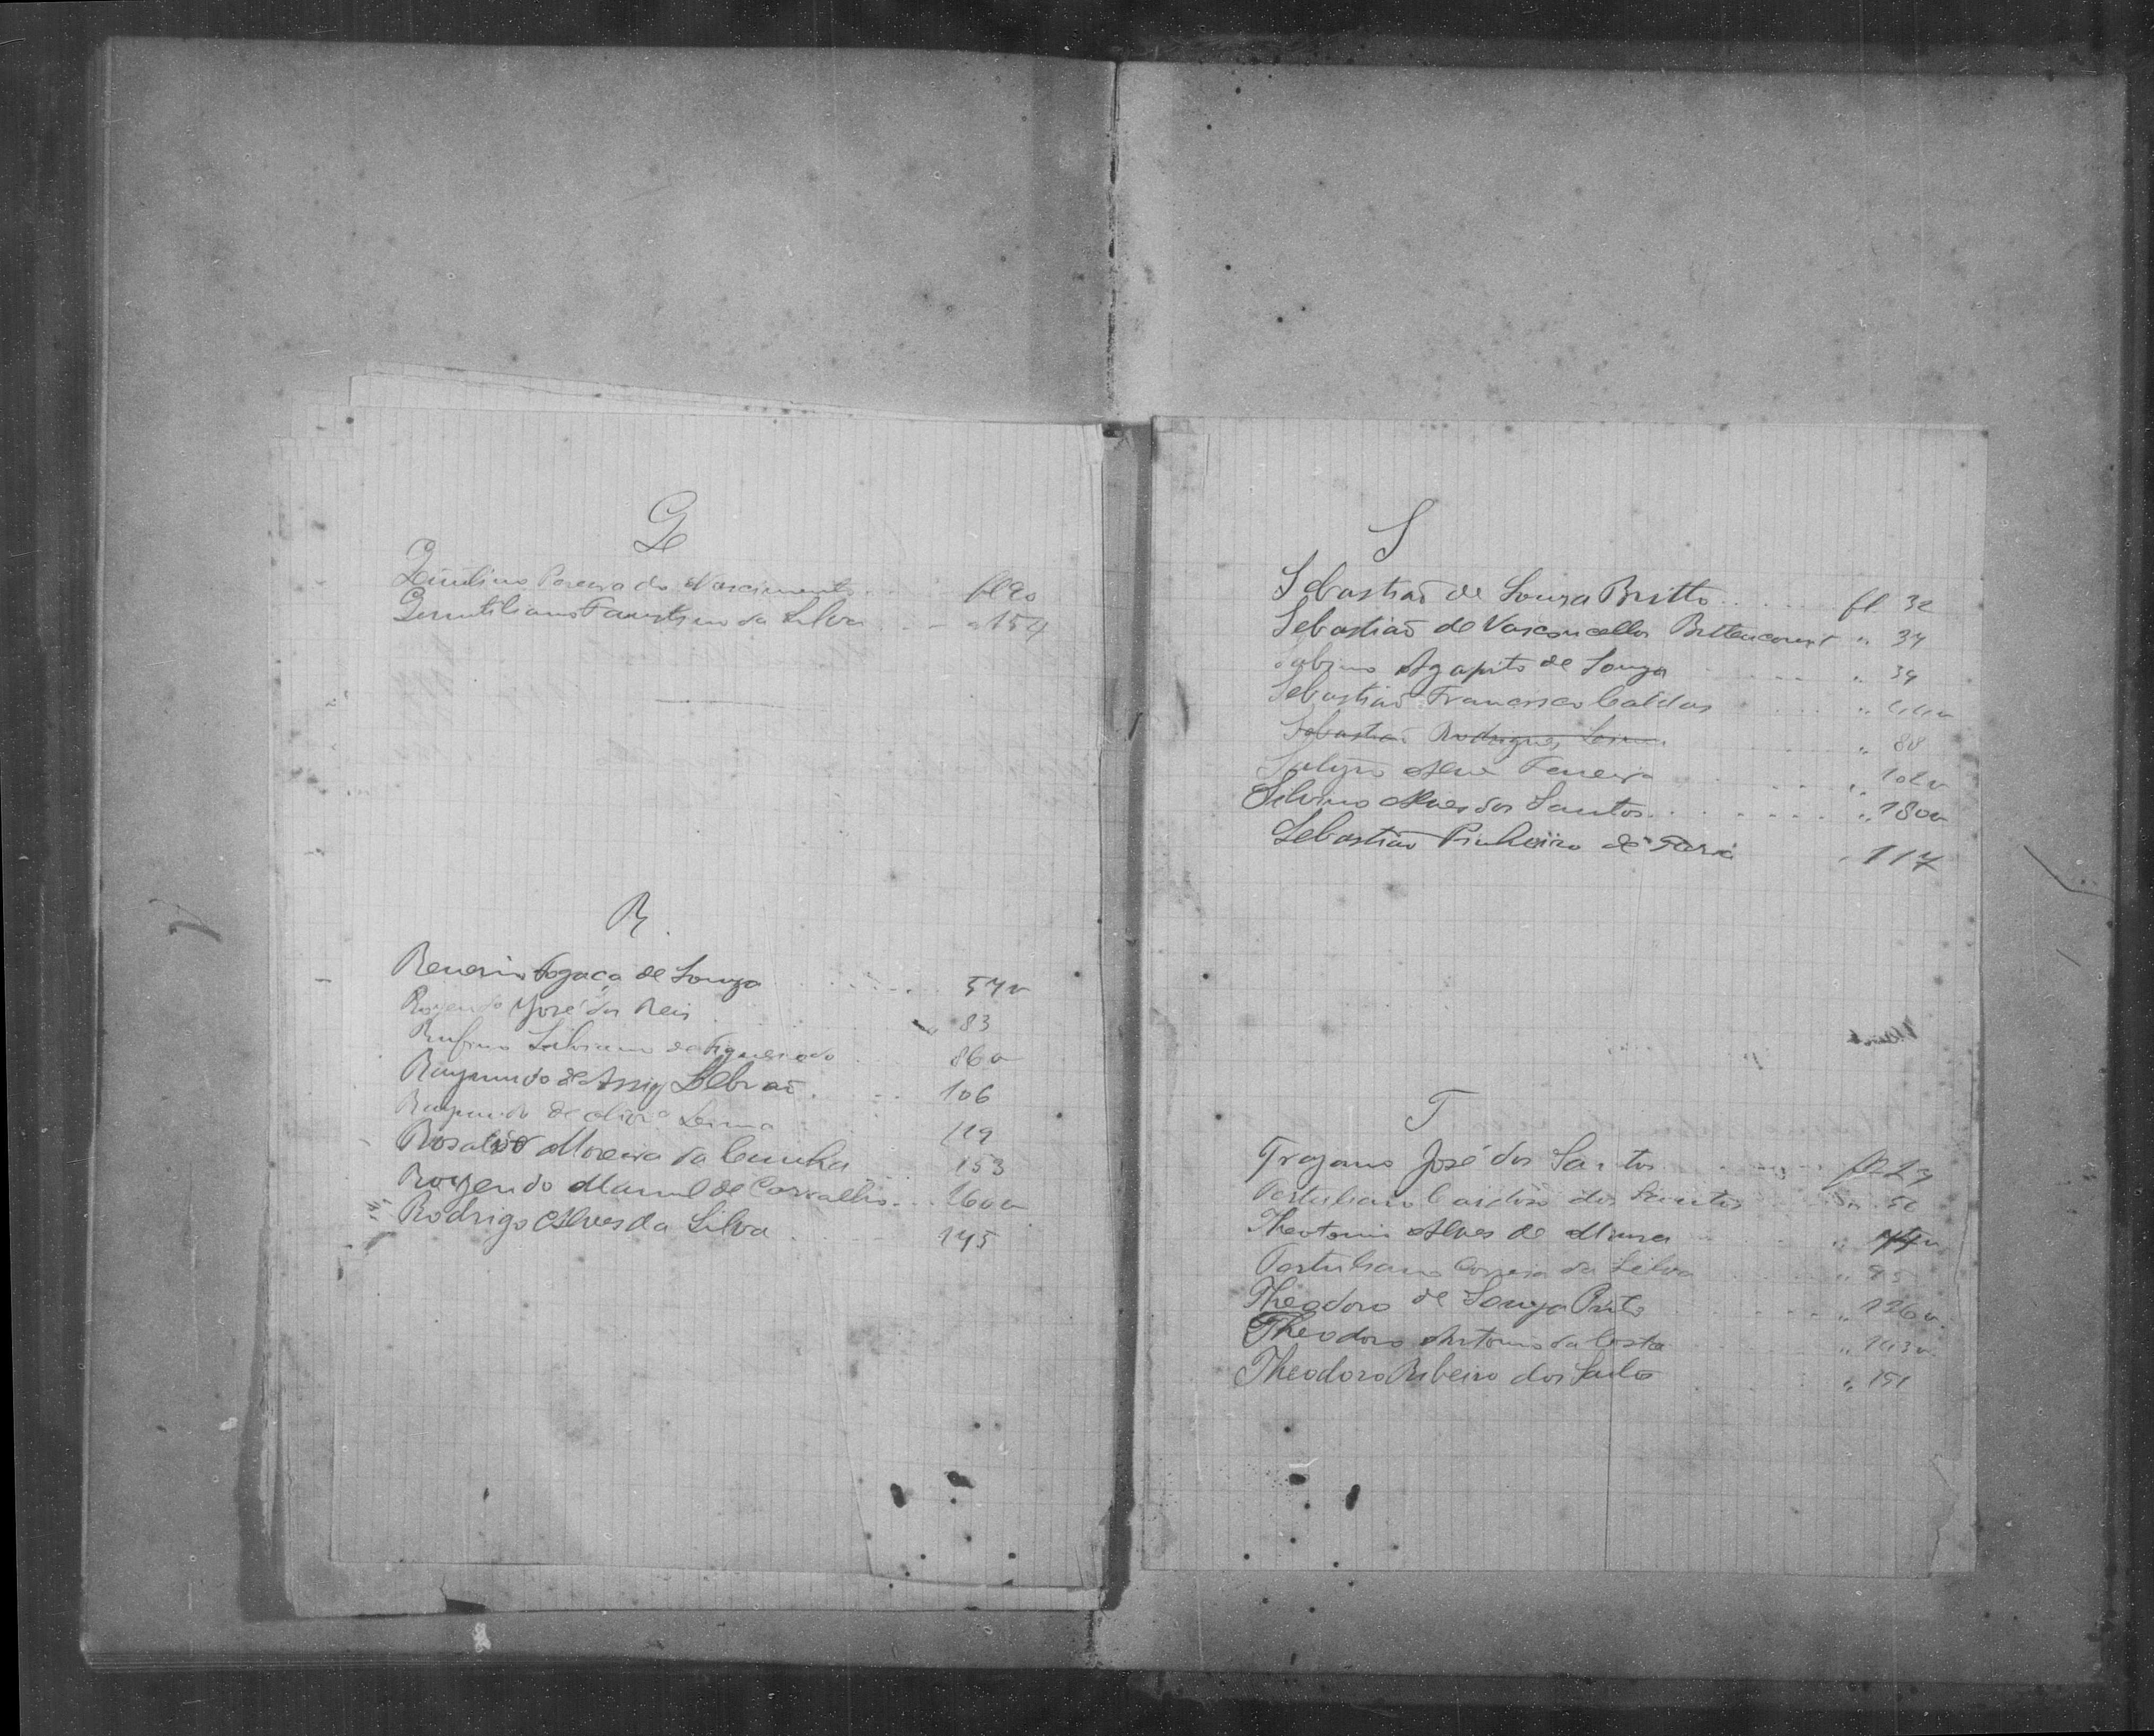 Q
Quintino Pereira do Nascimento fl 20
Quintiliano Faustino da Silva " 154
R.
Reverio Fogaça de Souza 57v
Rozendo José dos Reis " 83
Rufino Salviano de Figueiredo 86v
Raymundo de Assis Lebrão 106
Raymundo de Olivrª Leima 119
Rosalvo Moreira da Cunha 153
Rozendo Manoel de Carvalho 160v
Rodrigo Alves da Silva 145
S
Sebastião de Souza Britto fl 32
Sebastião de Vasconcellos Bittencourt " 34
Sabino Agapito de Souza " 39
Sebastião Francisco Caldas "
Sebastião Rodrigues " 88
Alves Ferreira " 102v
Silvino Alves dos Santos " 180v
Sebastião Pinheiro de Faria " 117
T
Trajano José dos Santos fl 27
Tertuliano Cardoso dos Santos 50
Theotonio Alves de Moura "
Tertuliano Correia da Silva " 95
Theodoro de Souza Brito " 126v.
Theodoro Antonio da Costa " 143v.
Theodoro Ribeiro dos Santos " 151